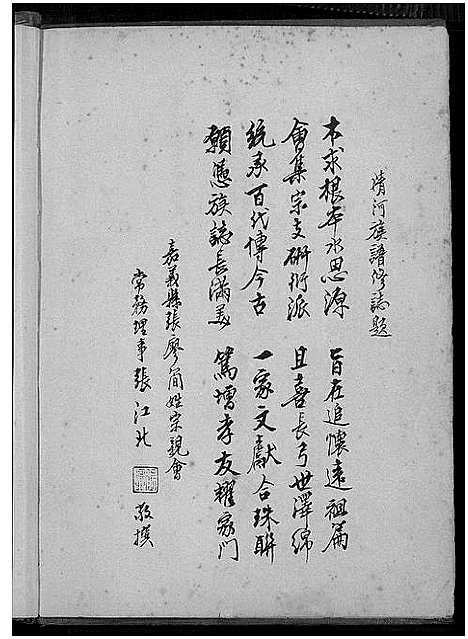 清河族譜修誌題
木求根本水思源 旨在追懷遠祖篇
會集宗支衍派 且喜長弓世澤綿
統承百代傳今古 一家文獻合珠聯
願憑族誌長滿美 篤增孝友耀家門
嘉義縣張廖簡姓宗親會
常務理事張江北 敬撰